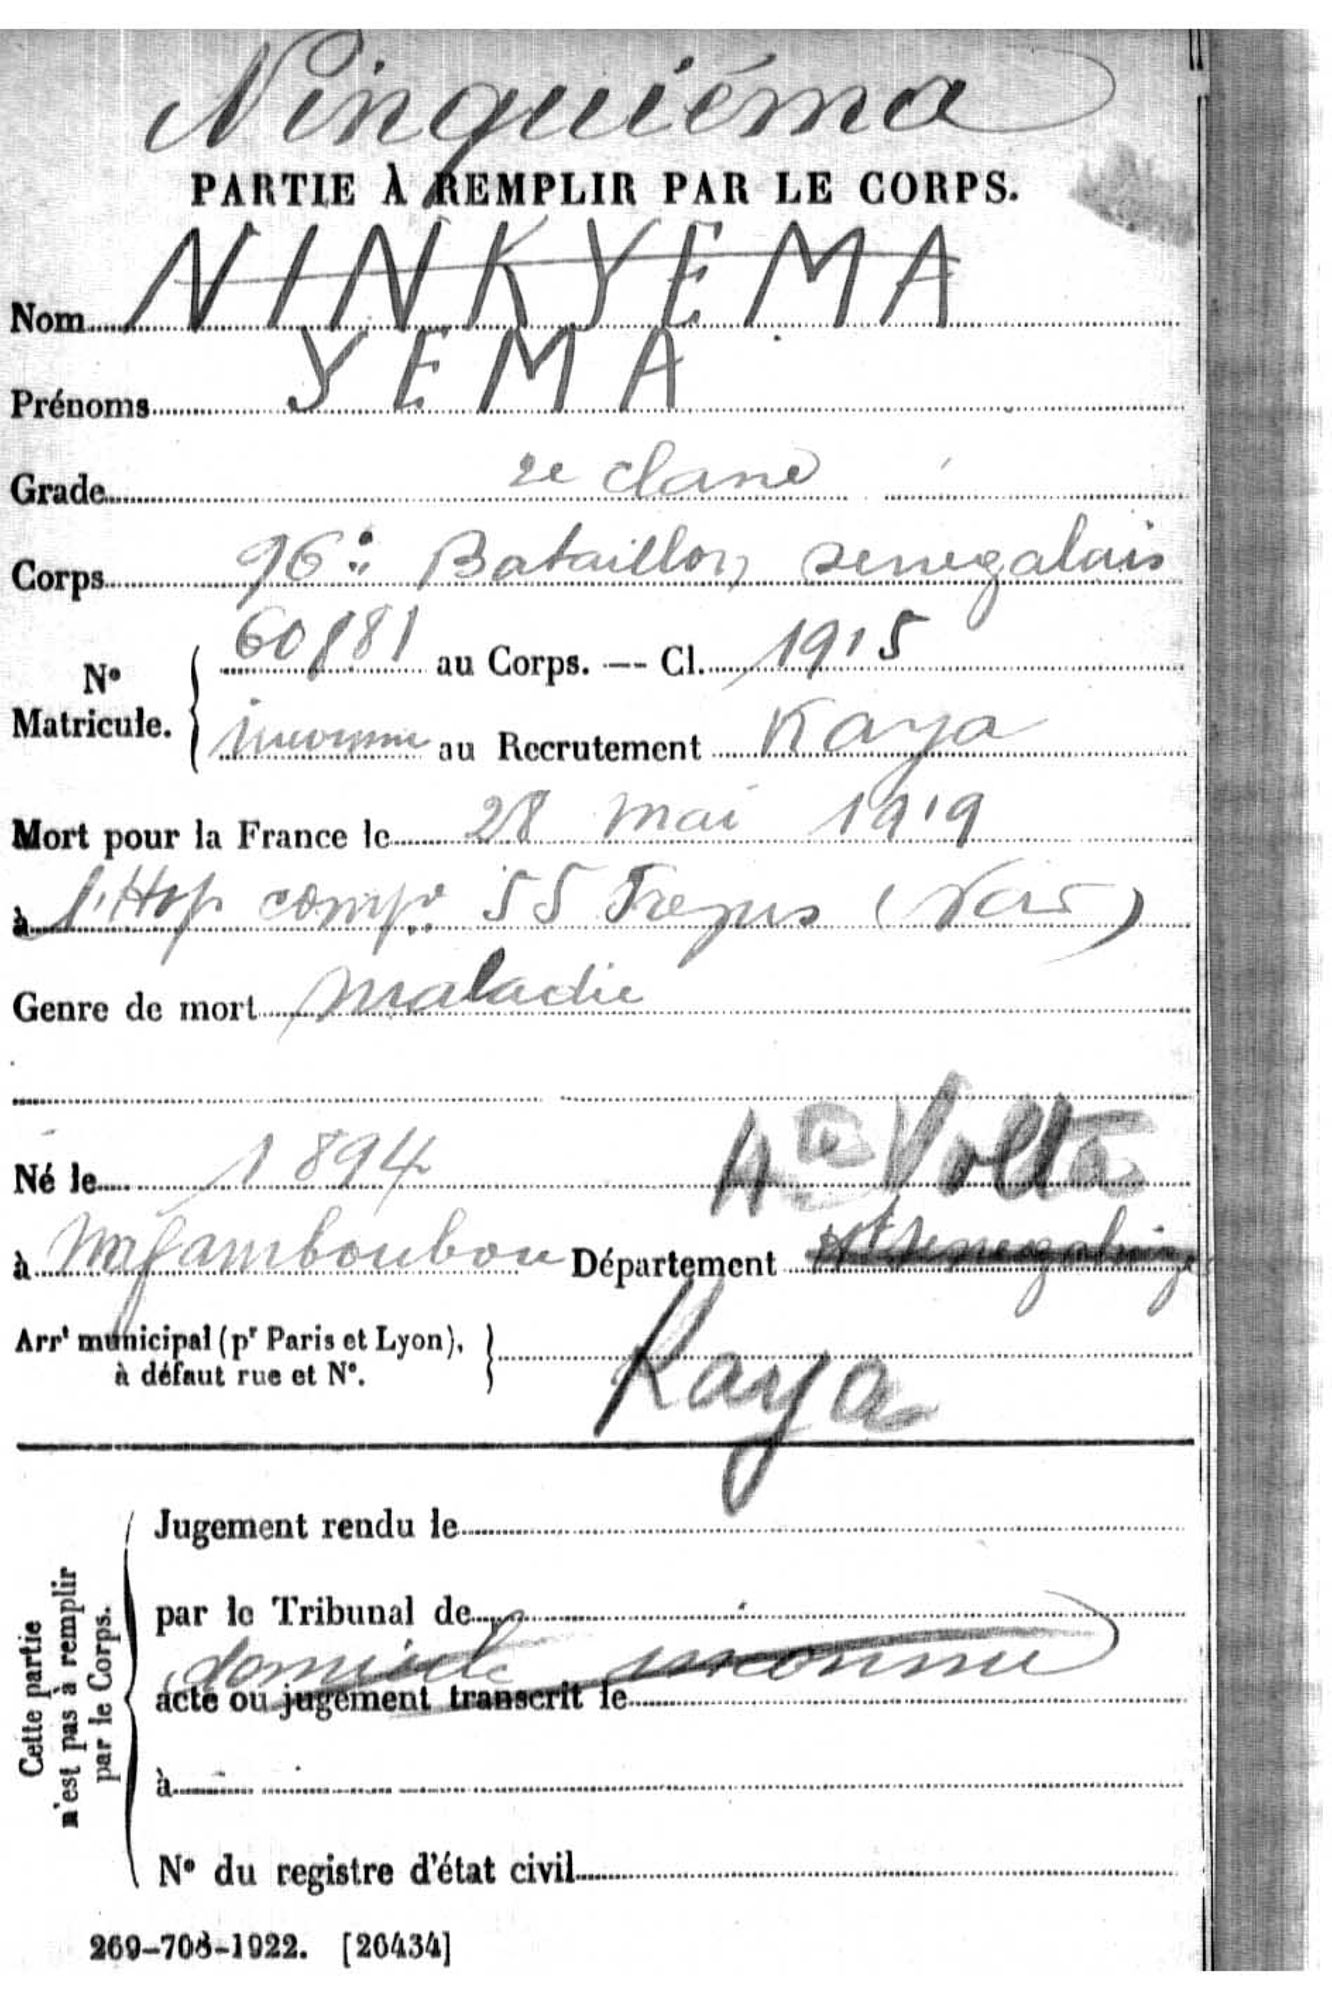 Ninguiéma
PARTIE À REMPLIR PAR LE CORPS.
Nom NINKYEMA
Prénoms YEMA
Grade 2e classe
Corps 96e Bataillon senegalais
N° Matricule. { 60881 au Corps. — Cl. 1915
inconnu au Recrutement Kaya
Mort pour la France le 28 mai 1919
à l'Hop comp. 55 Frejus (Var)
Genre de mort maladie
Hte Volta
Né le 1894
à Département Ht Senegal
Arrt municipal (pr Paris et Lyon), à défaut rue et N°. } Kaya
Cette partie n'est pas à remplir par le Corps.
Jugement rendu le
par le Tribunal de
domicile inconnu
acte ou jugement transcrit le
à
N° du registre d'état civil
269-708-1922. [26434]